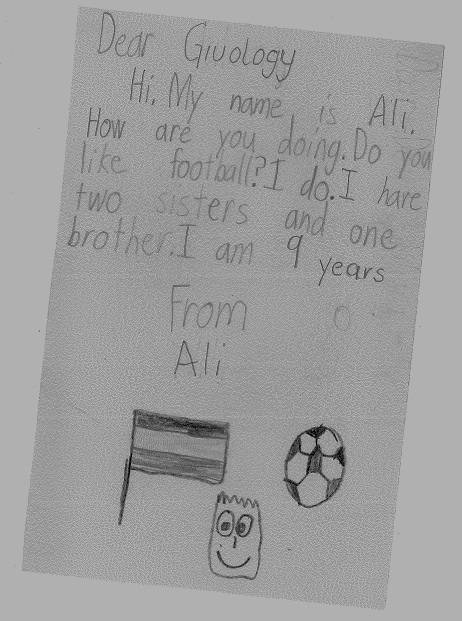 Dear Giuology
Hi. My name is Ali.
How are you doing. Do you
like football? I do. I have
two sisters and one
brother. I am 9 years
From
Ali